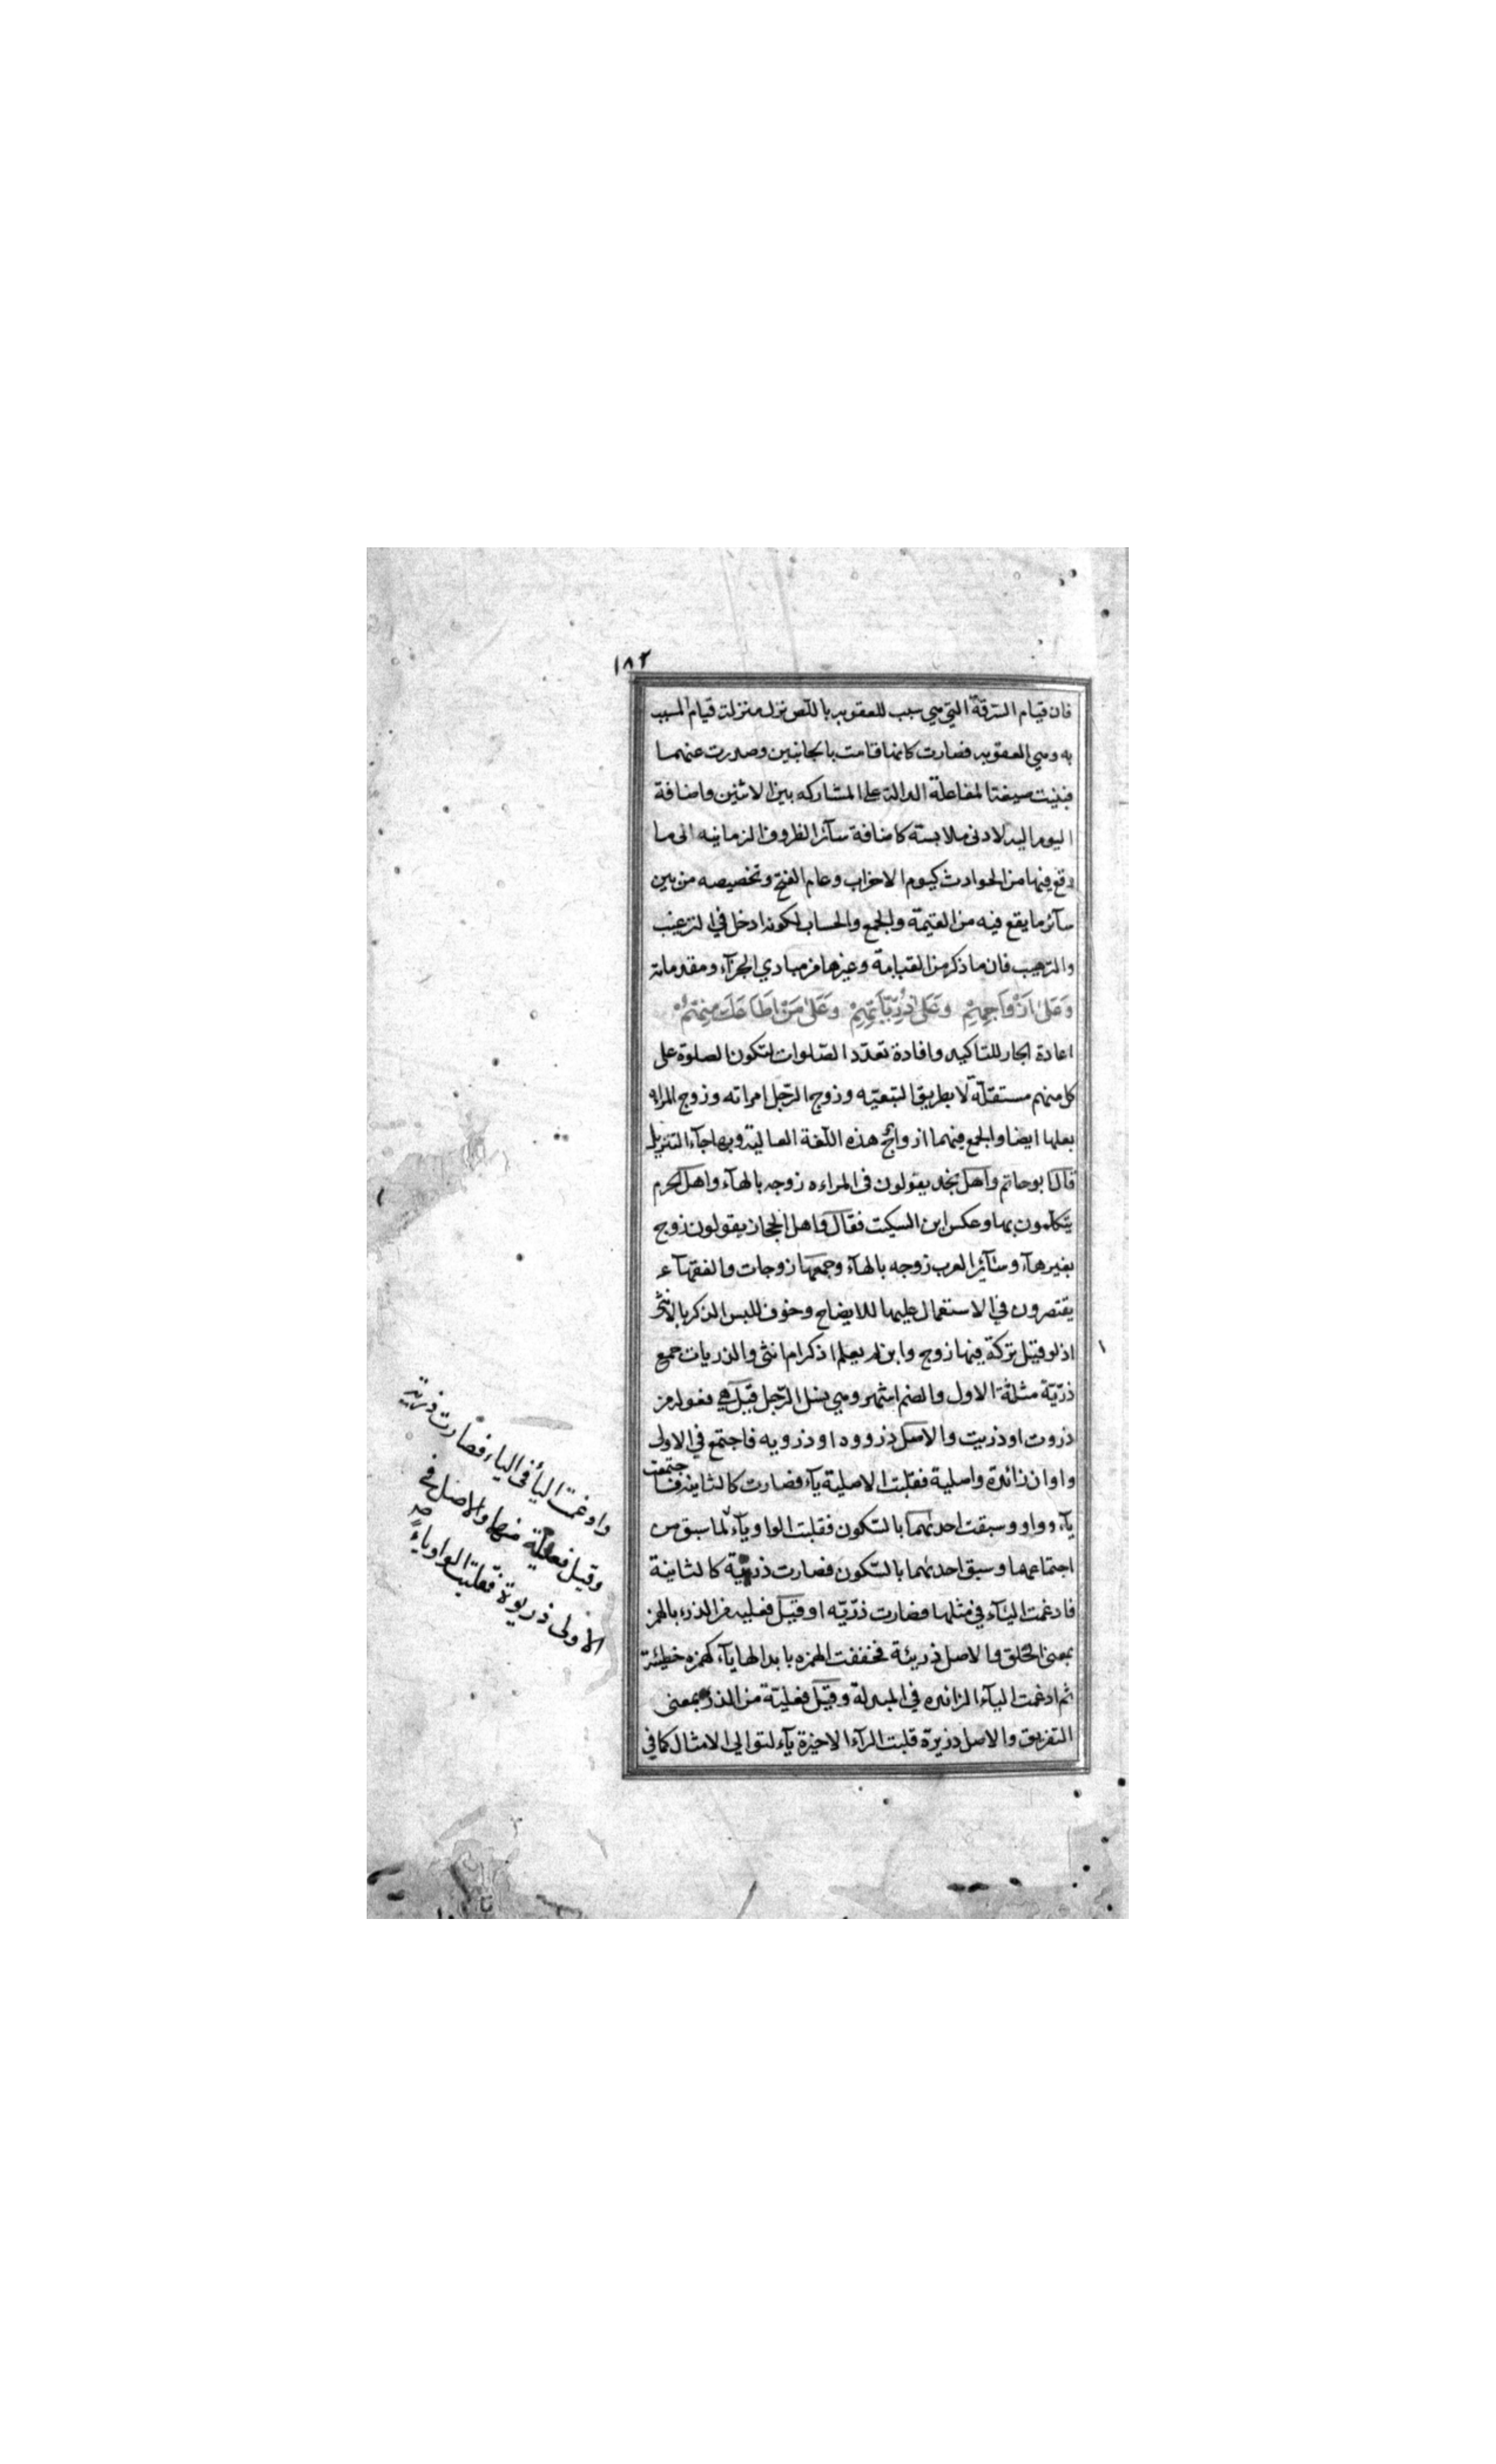 ١٨٢
فان قيام السرقة التي هي سبب للعقوبه باللص نزل منزلة قيام المسبب
به وهي العقوبه فصارت كانما قامت بالجانبين وصدرت عنهما
فبنيت صيغة المفاعلة الدالة على المشاركه بين الاثنين واضافة
اليوم اليه لادنى ملابسته كاضافة سآئر الظروف الزمانيه الى ما
وقع فيها من الحوادث كيوم الاحزاب وعام الفتح وتخصيصه من بين
سآئر ما يقع فيه من القيمة والجمع والحساب لكونه ادخل في الترغيب
والترهيب فان ما ذكر من القيامة وغيرها من مبادي الجزآء ومقدماته
وَعَلىٰ اَزْوَاجِهِمْ وَعَلىٰ ذُرِّيَّاتِهِمْ وَعَلىٰ مَنْ اَطَاعَكَ مِنْهُمْ
اعادة الجار للتاكيد وافادة تعدد الصلوات لتكون الصلوة على
كل منهم مستقلة لا بطريق التبعيه وزوج الرجل امراته وزوج المراه
بعلها ايضا والجمع فيهما ازواج هذه اللغة العالية وبها جآء التنزيل
قال ابو حاتم واهل نجد يقولون فى المراءه زوجه بالهآء واهل الحرم
يتكلمون بها وعكس ابن السكيت فقال واهل الحجاز يقولون زوج
بغير هآء وسآئر العرب زوجه بالهآء وجمعها زوجات والفقهآء
يقتصرون في الاستعمال عليها للايضاح وخوف للبس الذكر بالانثى
اذ لو قيل تركة فيها زوج وابن لم يعلم اذكر ام انثى والذريات جمع
ذرّيّة مثلثة الاول والضم اشهر وهي نسل الرّجل قيل هي فعوله من
ذروت او ذريت والاصل ذرووه او ذرويه فاجتمع في الاولى
واوان زائدة واصلية فقلبت الاصلية يآء فصارت كالثانية فاجتمعت
يآء وواو وسبقت احدىهما بالسّكون فقلبت الواو يآء لما سبق من
اجتماعهما وسبق احدىهما بالسّكون فصارت ذريية كالثانية
فادغمت اليآء في مثلها فصارت ذرّيّه او قيل فعليه من الذرء بالهمز
بمعنى الخلق والاصل ذريئة فخففت الهمزه بابدالها يآء كهمزه خطيئة
ثم ادغمت اليآء الزائده في المبدلة وقيل فعليّة من الذر بمعنى
التفريق والاصل ذريرة قلبت الرآء الاخيرة يآء لتوالي الامثال كما في
وادغمت اليآء فى الياء فصارت ذرية
وقيل فعلية منهما والاصل في
الاولى ذريوة فقلبت الواو ياء
صح